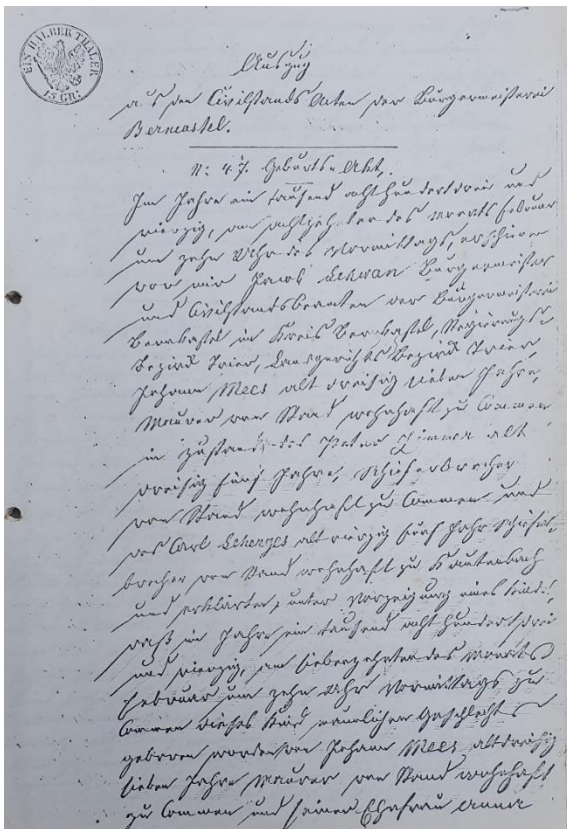 EIN HALBER THALER
15 GR:
Auszug
aus den Civilstands Akten der Bürgermeisterei
Berncastel.
N: 47. Geburts-Akt.
Im Jahre ein tausend achthundert drei und
vierzig, am achtzehnten des Monats Februar
um zehn Uhr des Vormittags, erschien
vor mir Jacob Schwan Bürgermeister
und Civilstandsbeamten der Bürgermeisterei
Bernkastel im Kreis Bernkastel, Regierungs-
bezirk Trier, Landgerichts Bezirk Trier
Johann Mees alt dreißig sieben Jahre,
Maurer von Stand wohnhaft zu Commen
in zustand des Peter alt
dreißig fünf Jahre, Schieferbrecher
von Stand wohnhaft zu Commen und
des Carl Scherges alt vierzig fünf Jahr Schiefer-
brecher von Stand wohnhaft zu Kautenbach
und erklärten, unter Vorzeigung eines Kindes
daß im Jahre ein tausend acht hundert drei
und vierzig, am siebenzehnten des Monats
Februar um zehn Uhr Vormittags zu
Commen dieses Kind männlichen Geschlechts
geboren worden von Johann Mees alt dreißig
sieben Jahre Maurer von Stand wohnhaft
zu Commen und seiner Ehefrau Anna